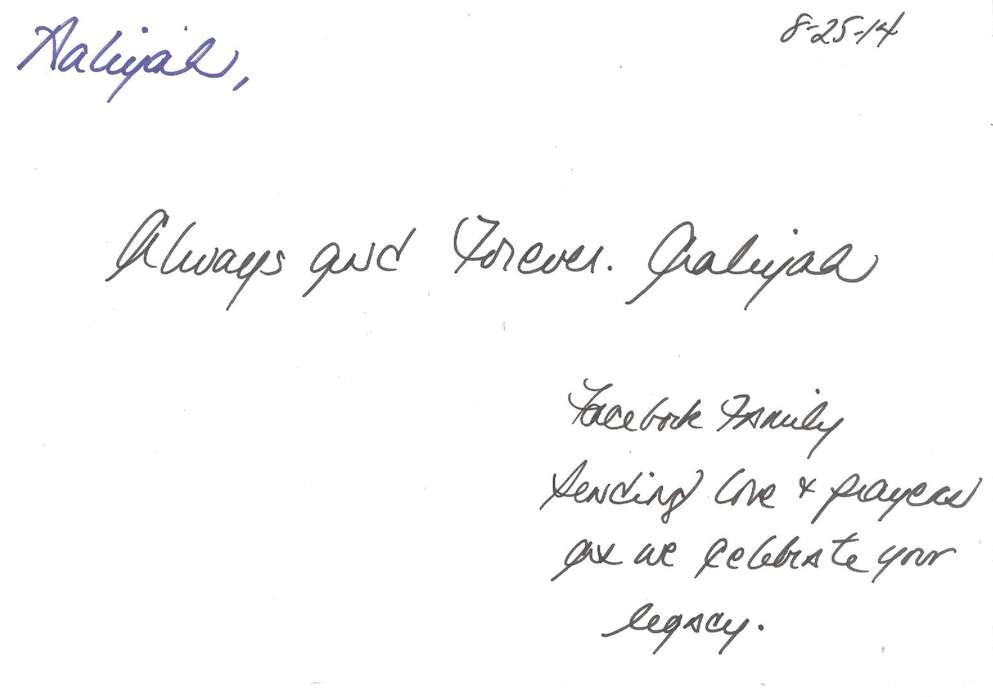 8-25-14
Aaliyah,
Always and Forever. Aaliyah
Facebook Family
Sending love + prayers
as we celebrate your
legacy.